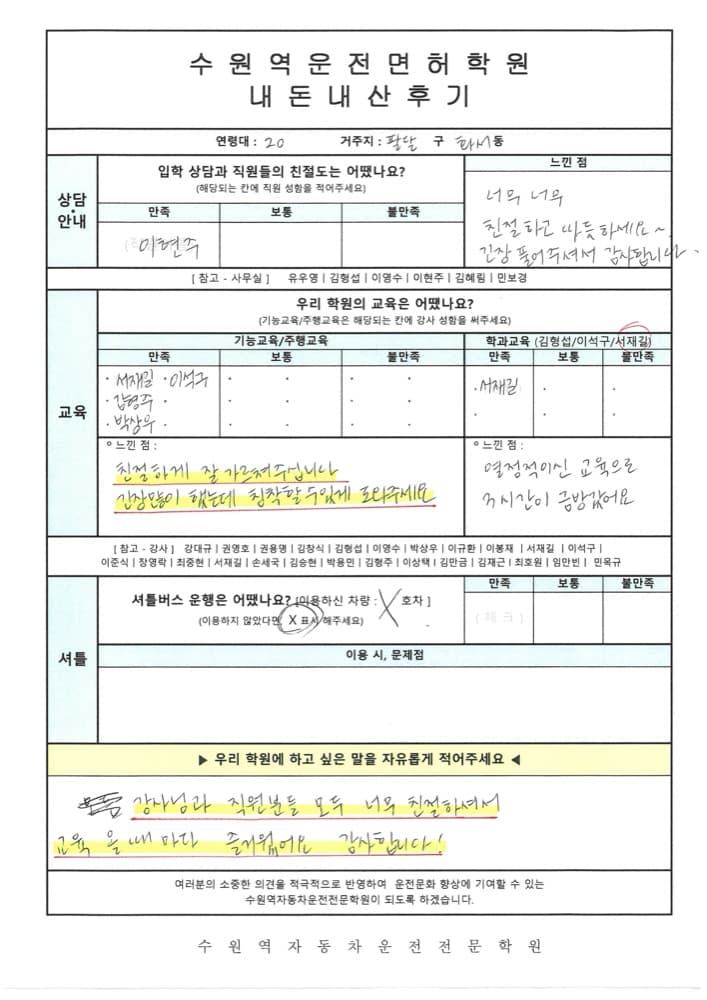 수원역운전면허학원
내돈내산후기
연령대 : 20 거주지 : 팔달 구 화서동
상담
·
안내
입학 상담과 직원들의 친절도는 어땠나요?
(해당되는 칸에 직원 성함을 적어주세요)
느낀 점
만족 보통 불만족
이현주
너무 너무
친절하고 따듯하세요~
긴장 풀어주셔서 감사합니다.
[ 참고 - 사무실 ] 유우영 | 김형섭 | 이영수 | 이현주 | 김혜림 | 민보경
교육
우리 학원의 교육은 어땠나요?
(기능교육/주행교육은 해당되는 칸에 강사 성함을 써주세요)
기능교육/주행교육 학과교육 (김형섭/이석구/서재길)
만족 보통 불만족 만족 보통 불만족
· 서재길 · 이석구 · · · · · 서재길 · ·
· 김형주 · · · · · · ·
· 박상우 · · · ·
º 느낀 점 :
친절하게 잘 가르쳐주십니다
긴장많이 했는데 침착할수있게 도와주세요
º 느낀 점 :
열정적이신 교육으로
3시간이 금방갔어요
[ 참고 - 강사 ] 강대규 | 권영호 | 권용명 | 김창식 | 김형섭 | 이영수 | 박상우 | 이규환 | 이봉재 | 서재길 | 이석구 |
이준식 | 장영락 | 최중현 | 서재길 | 손세국 | 김승현 | 박용민 | 김형주 | 이상택 | 김만금 | 김재근 | 최호원 | 임만빈 | 민옥규
셔틀
셔틀버스 운행은 어땠나요? [이용하신 차량 : X 호차 ]
(이용하지 않았다면, X 표시 해주세요)
만족 보통 불만족
( 체 크 )
이용 시, 문제점
▶ 우리 학원에 하고 싶은 말을 자유롭게 적어주세요 ◀
강사님과 직원분들 모두 너무 친절하셔서
교육 올때 마다 즐거웠어요 감사합니다!
여러분의 소중한 의견을 적극적으로 반영하여 운전문화 향상에 기여할 수 있는
수원역자동차운전전문학원이 되도록 하겠습니다.
수원역자동차운전전문학원